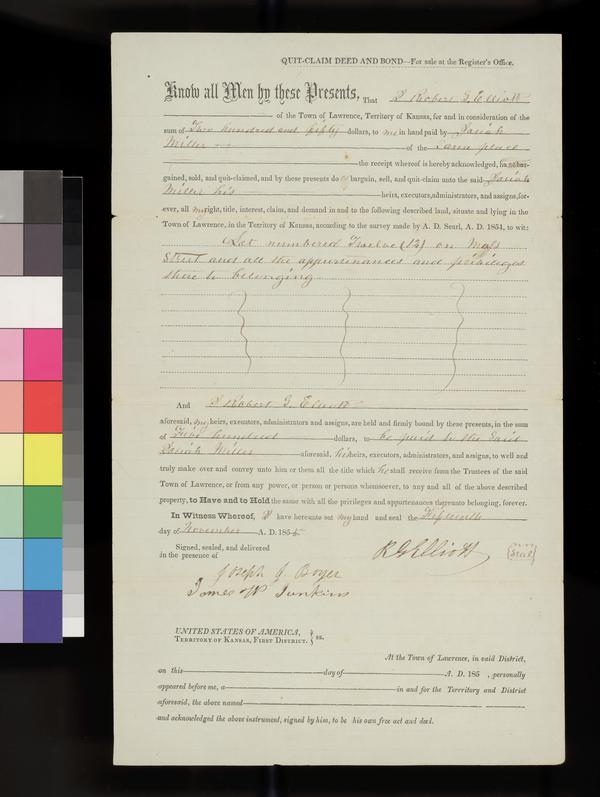 QUIT-CLAIM DEED AND BOND—For sale at the Register's Office.
Know all Men by these Presents, That I Robert G. Elliott
of the Town of Lawrence, Territory of Kansas, for and in consideration of the
sum of Two hundred and fifty dollars, to me in hand paid by Josiah
Miller of the same place
the receipt whereof is hereby acknowledged, ha bar-
gained, sold, and quit-claimed, and by these presents do bargain, sell, and quit-claim unto the said Josiah
Miller his heirs, executors, administrators, and assigns, for-
ever, all my right, title, interest, claim, and demand in and to the following described land, situate and lying in the
Town of Lawrence, in the Territory of Kansas, according to the survey made by A. D. Searl, A. D. 1854, to wit:
Lot numbered Twelve (12) on Mass
Street and all the appurtenances and privileges
there to belonging
And I Robert G. Elliott
aforesaid, my heirs, executors, administrators and assigns, are held and firmly bound by these presents, in the sum
of Five hundred dollars, to be paid to the said
Josiah Miller aforesaid, his heirs, executors, administrators, and assigns, to well and
truly make over and convey unto him or them all the title which he shall receive from the Trustees of the said
Town of Lawrence, or from any power, or person or persons whomsoever, to any and all of the above described
property, to Have and to Hold the same with all the privileges and appurtenances thereunto belonging, forever.
In Witness Whereof, I have hereunto set my hand and seal the
day of November A. D. 185
Signed, sealed, and delivered
in the presence of
R G Elliott
Seal
Joseph J. Boyer
James W Junkins
UNITED STATES OF AMERICA,
TERRITORY OF KANSAS, FIRST DISTRICT. } ss.
At the Town of Lawrence, in said District,
on this day of A. D. 185 , personally
appeared before me, a in and for the Territory and District
aforesaid, the above named
and acknowledged the above instrument, signed by him, to be his own free act and deed.